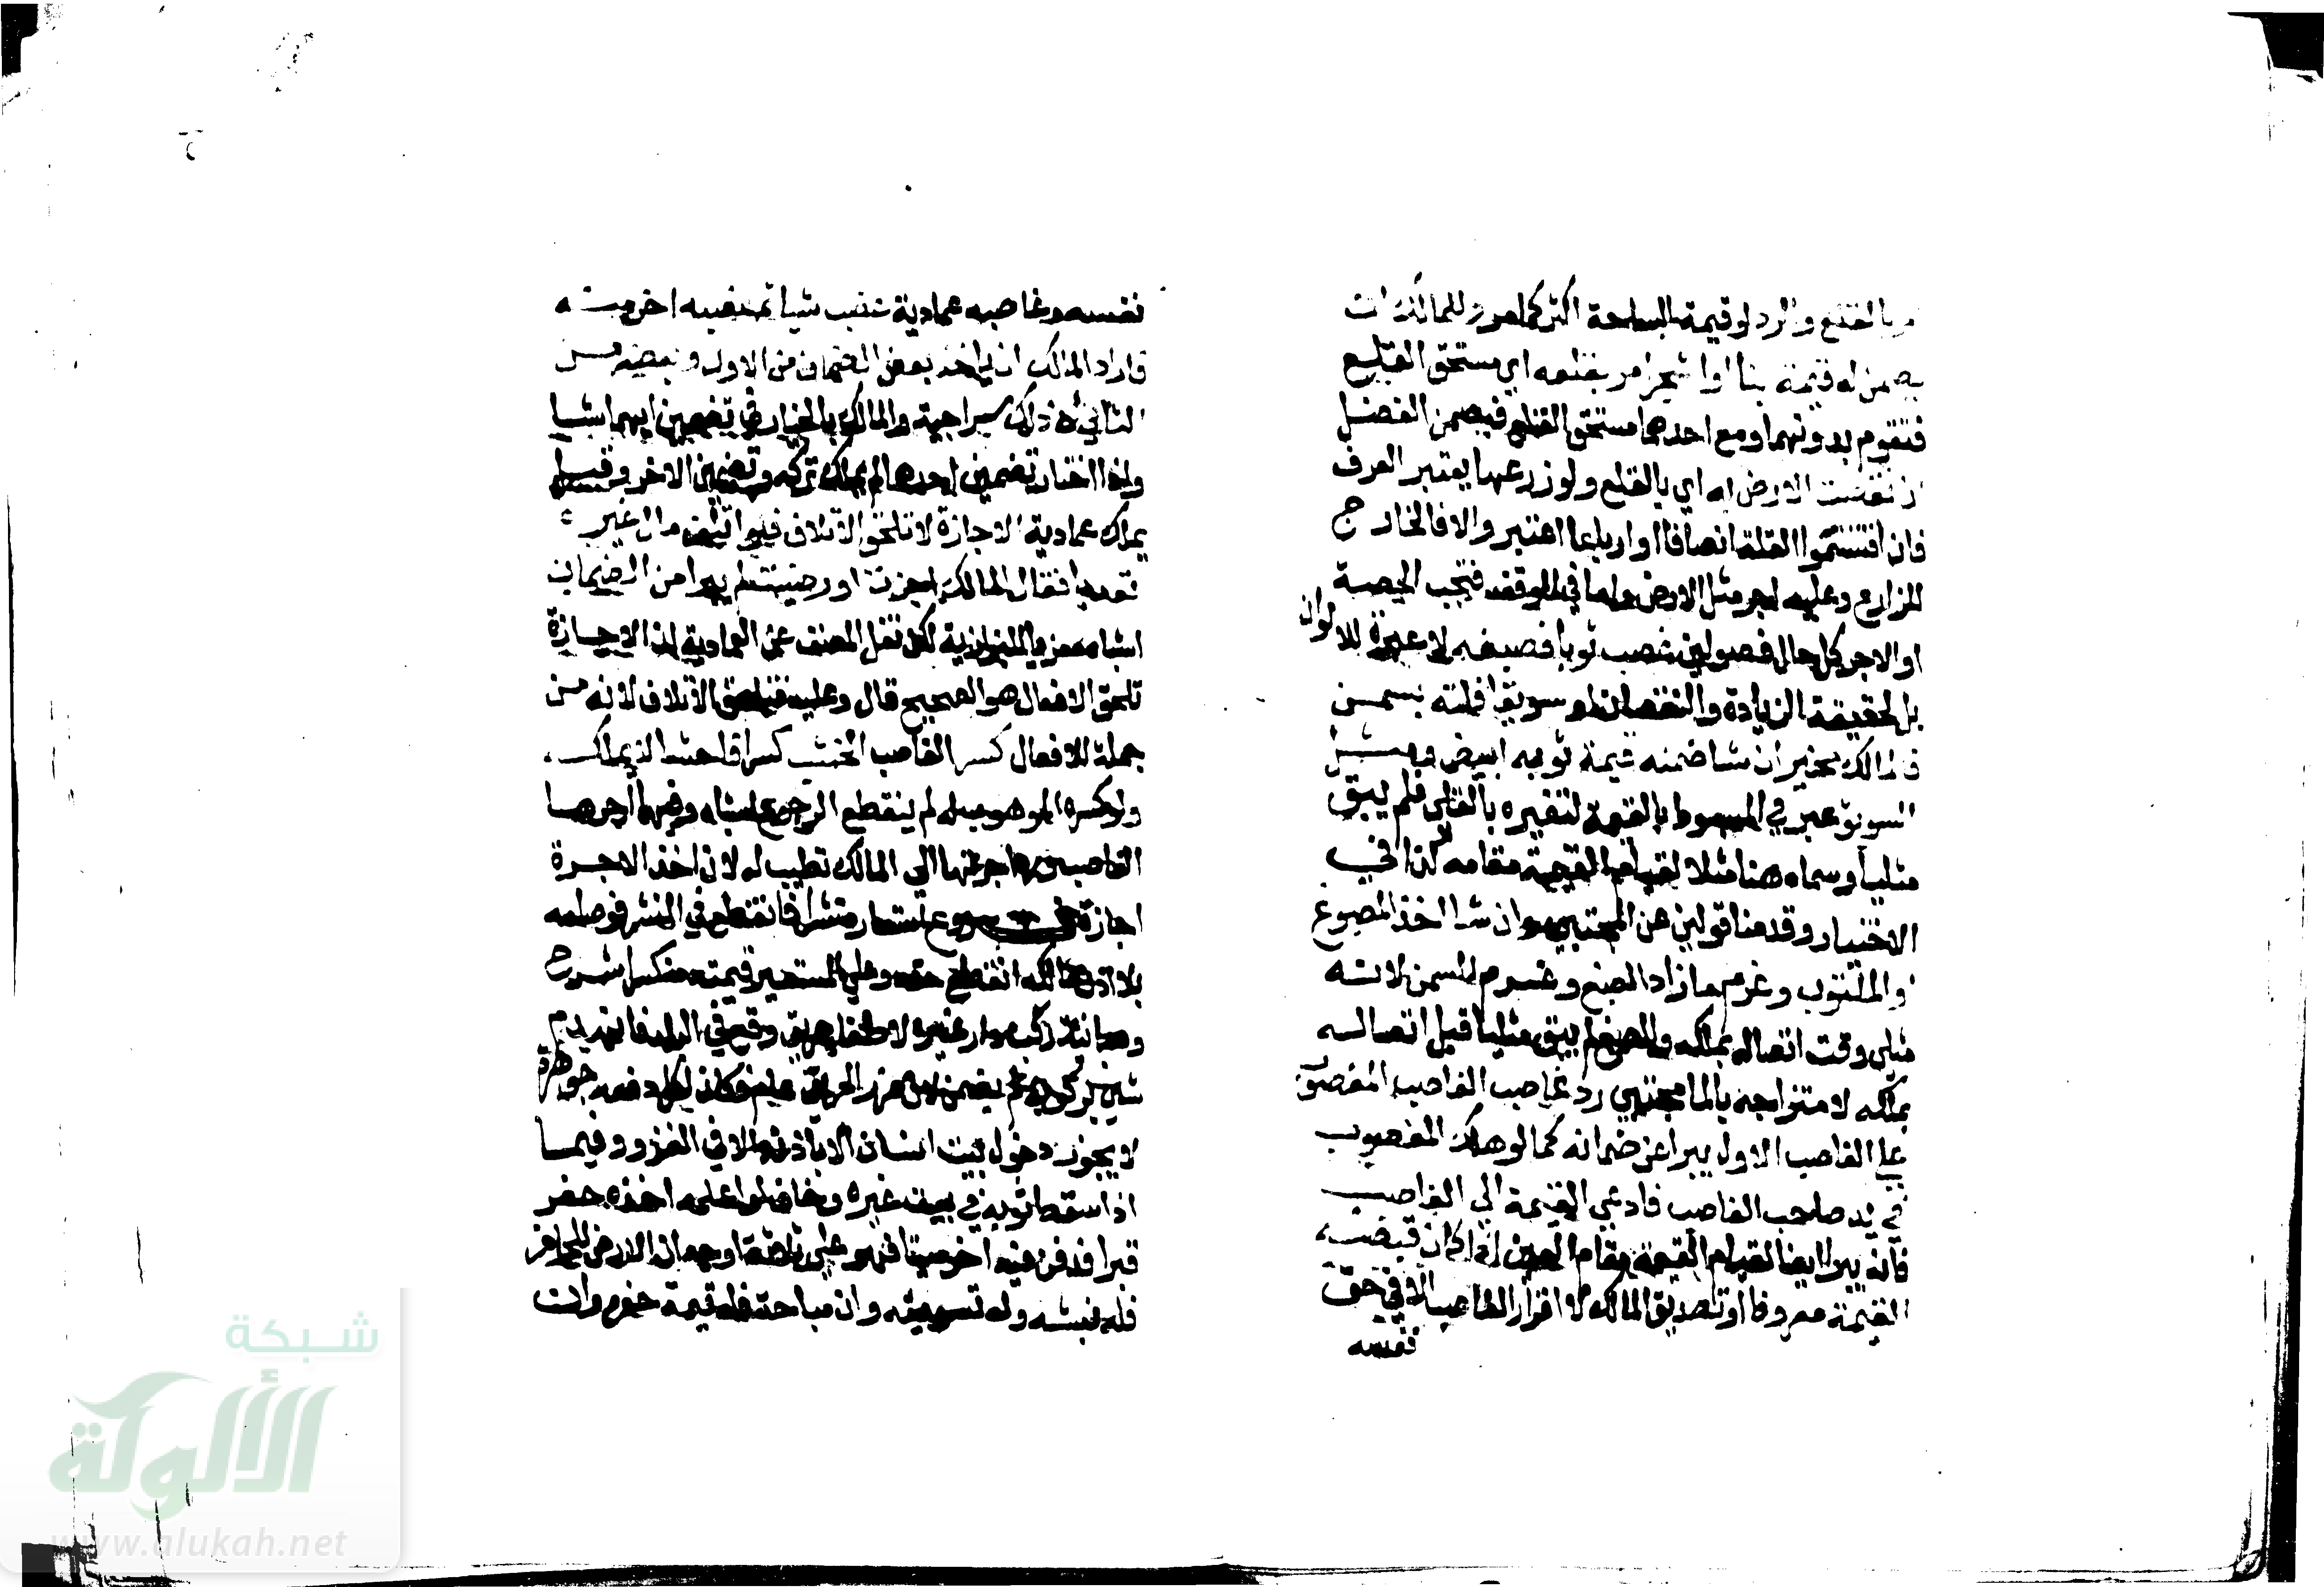 امر بالقلع والرد لو قيمة الساحة اكثر كما مر وللمالك ان
يضمن له قيمة بنا او شجر امر بقلعه اي مستحق القلع
فتقوم بدونهما ومع احدهما مستحق القلع فيضمن الفضل
ان نقصت الارض به اي بالقلع ولو زرعها يعتبر العرف
فان اقتسموا الغلة انصافا او ارباعا اعتبر والا فالخارج
للزارع وعليه اجر مثل الارض واما في الوقف فتجب الحصة
او الاجر بكل حال فصولين غصب ثوبا فصبغه لا عبرة للالوان
بل لحقيقة الزيادة والنقصان او سويقا فلته بسمن
فالمالك مخير ان شا ضمنه قيمة ثوبه ابيض ومثل
السويق عبر في المبسوط بالقيمة لتغيره بالقلي فلم يبق
مثليا وسماه هنا مثلا لقيام القيمة مقامه كذا في
الاختيار وقدمنا قولين عن المجتبي وان شا اخذ المصبوغ
او الملتوت وغرم ما زاد الصبغ وغرم السمن لانه
مثلي وقت اتصاله بملكه والصبغ لم يبق مثليا قبل اتصاله
بملكه لامتزاجه بالما مجتبي رد غاصب الغاصب المغصوب
علي الغاصب الاول يبرا عن ضمانه كما لو هلك المغصوب
في يد غاصب الغاصب فادي القيمة الي الغاصب
فانه يبرا ايضا لقيام القيمة مقام العين اذا كان قبضه
القيمة معروفا او تصديق المالك لا اقرار الغاصب الا في حق
نفسه
نفسه وغاصبه عمادية غصب شيا ثم غصبه اخر منه
فاراد المالك ان ياخذ بعض الضمان من الاول وبعضه من
الثاني له ذلك سراجية والمالك بالخيار في تضمين ايهما شا
واذا اختار تضمين احدهما لم يملك تركه وتضمين الاخر وقيل
يملك عمادية الاجازة لا تلحق الاتلاف فلو اتلف مال غيره
تعديا فقال المالك اجزت او رضيت لم يبرا من الضمان
اشباه معزيا للبزازية لكن نقل المصنف عن العمادية ان الاجازة
تلحق الافعال هو الصحيح قال وعليه فتلحق الاتلاف لانه من
جملة الافعال كسر الغاصب الخشب كسرا فاحشا لا يملكه
ولو كسره الموهوب له لم ينقطع الرجوع اشباه وفيها اجرها
الغاصب ورد اجرتها الي المالك تطيب له لان اخذ الاجرة
اجازة استعار منشرا فانقطع في النشر فوصله
بلا اذن مالكه انقطع حقه وعلي المستعير قيمته منكسرا شرح
وهبانية ركب دار غيره لاطفا حريق وقع في البلد فانهدم
شي بركوبه لم يضمن لان ضرر الحريق عام فكان لكل دفعه جوهرة
لا يجوز دخول بيت انسان الا باذنه الا في الغزو وفيما
اذا سقط ثوبه في بيت غيره وخاف لو اعلمه اخذه حفر
قبرا فدفن فيه اخر ميتا فهو علي ثلاثة اوجه ان الارض للحافر
فله نبشه وله تسويته وان مباحة فله قيمة حفره وان
شبكة
الألوكة
www.alukah.net